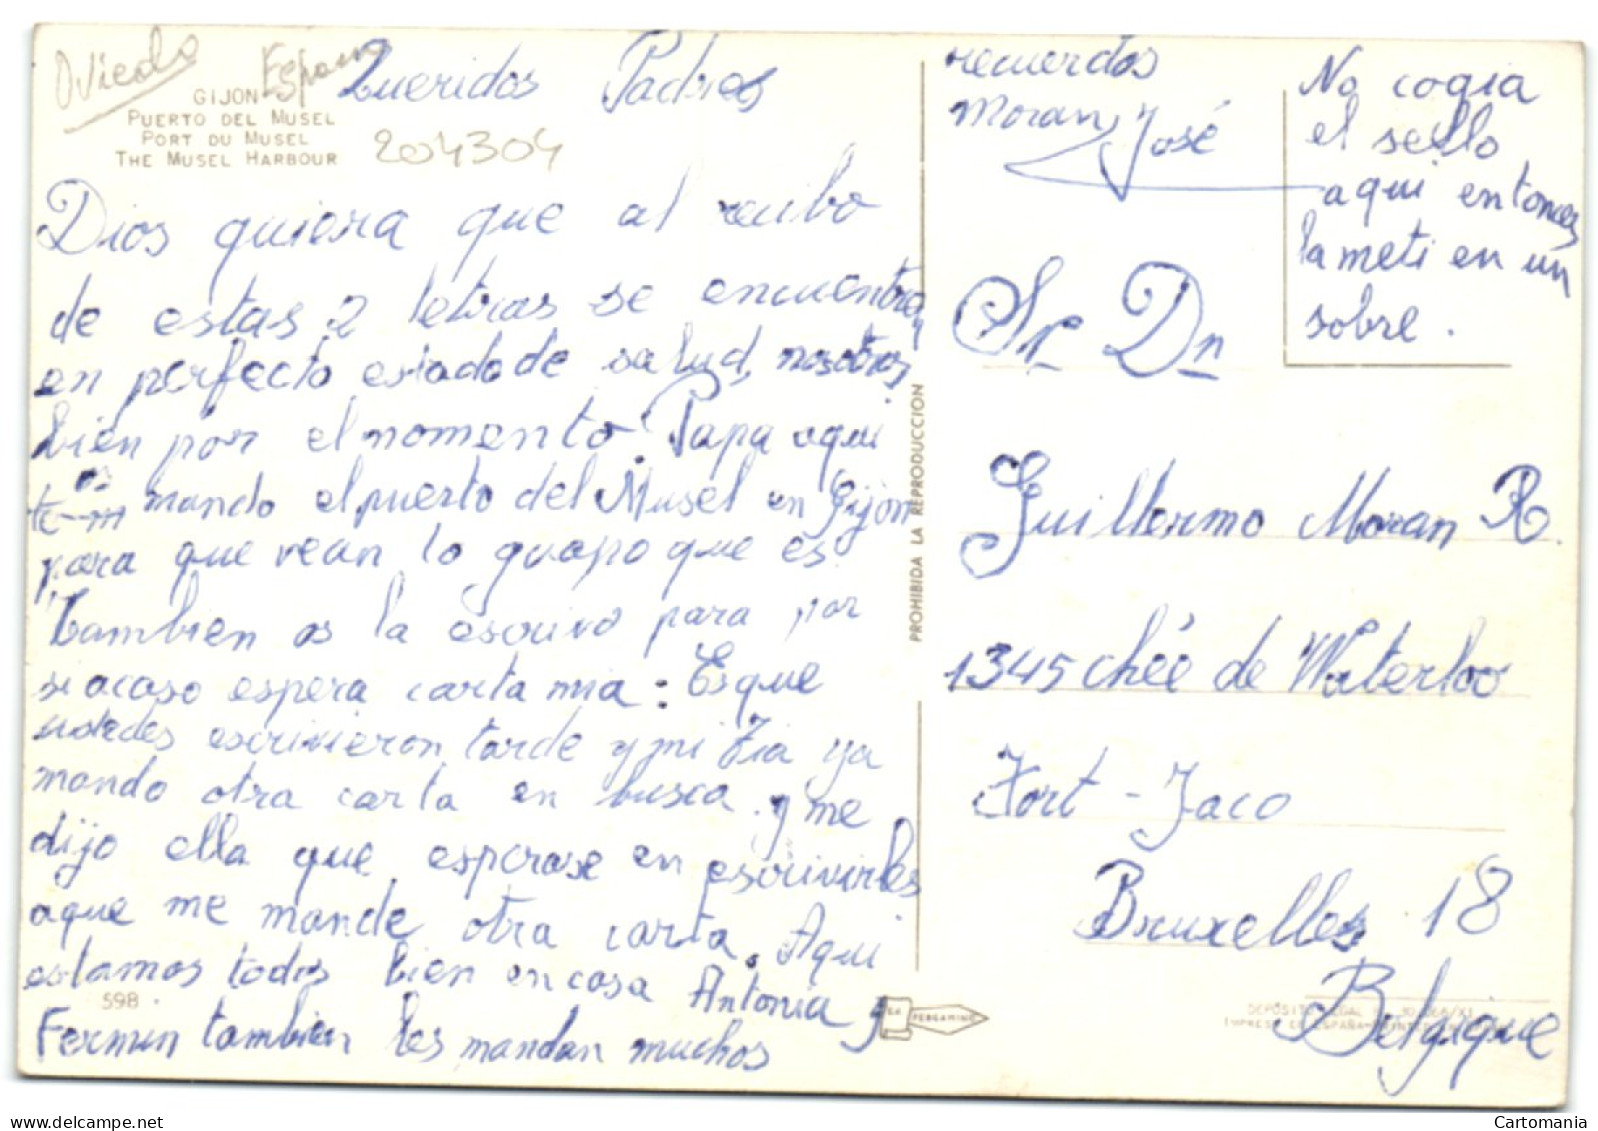 Oviedo España
GIJON
PUERTO DEL MUSEL
PORT DU MUSEL
THE MUSEL HARBOUR
204304
Queridos Padres
Dios quiera que al recibo
de estas 2 letras se encuentren
en perfecto estado de salud, nosotros
bien por el nomento. Papa aqui
os
te mando el puerto del Musel en Gijon
para que vean lo guapo que es
Tambien os la escrivo para por
si acaso espera carta mia: Esque
ustedes escrivieron tarde y mi Tia ya
mando otra carta en busca. y me
dijo ella que esperase en escrivirles
aque me mande otra carta. Aqui
estamos todos bien en casa Antonia y
598
Fermin tambien les mandan muchos
recuerdos
Moran José
No cogia
el sello
aqui entonces
la meti en un
sobre.
Sr Dn
Guillermo Moran R.
1345 chée de Waterloo
Fort-Jaco
Bruxelles 18
Belgique
PROHIBIDA LA REPRODUCCION
PERGAMINO
DEPOSITO LEGAL
Cartomania